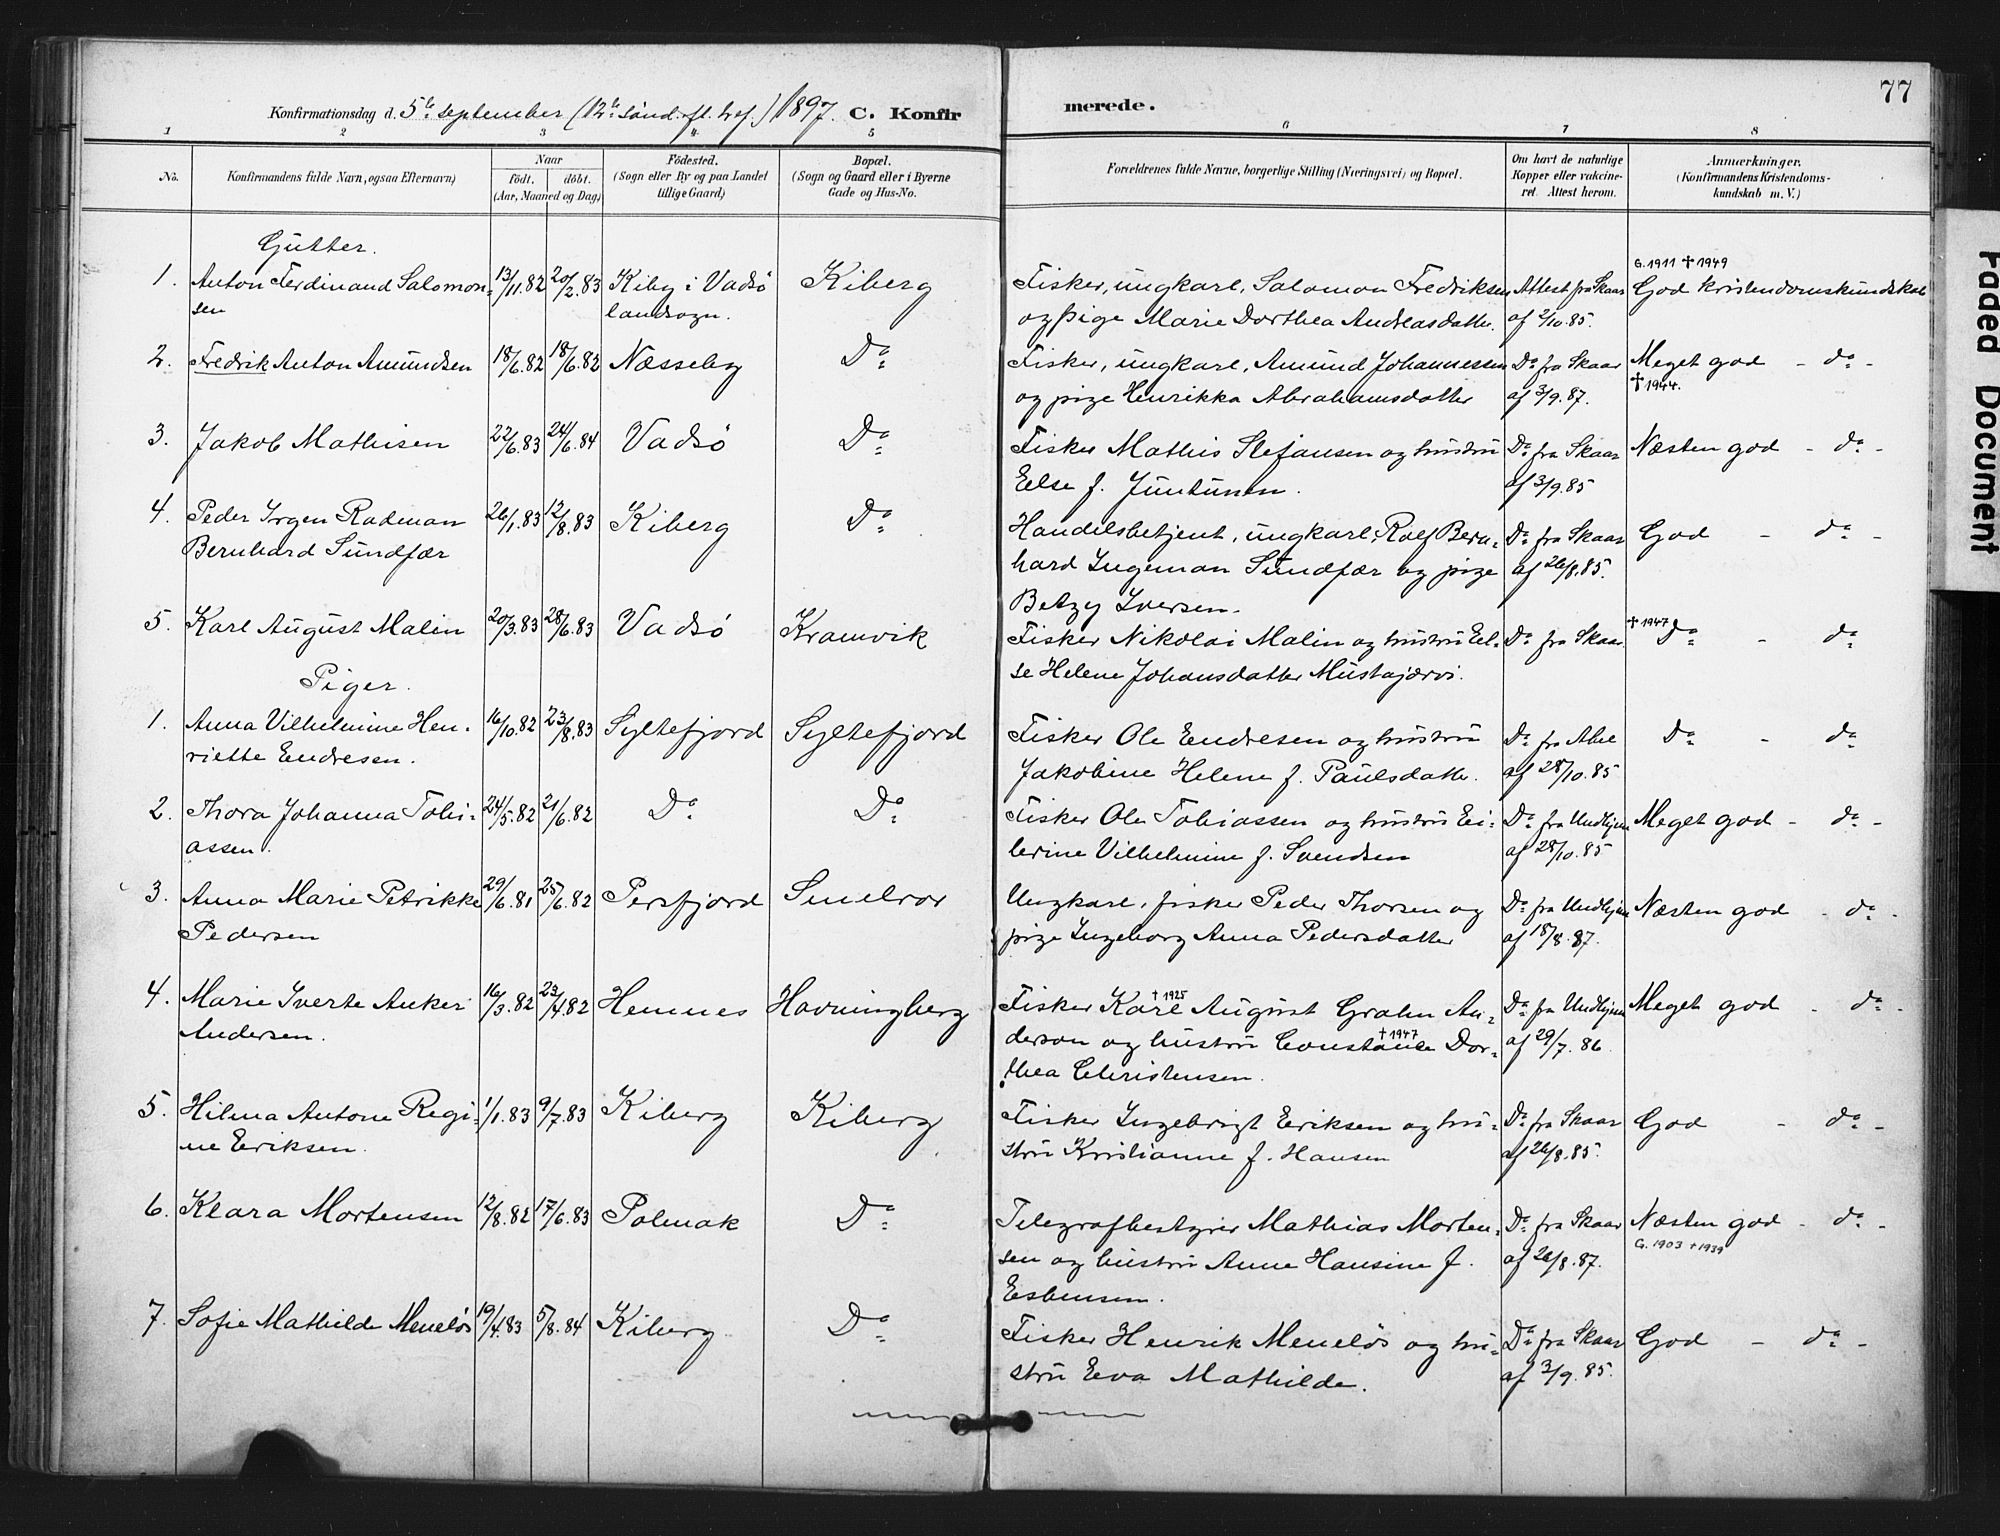 77
Konfirmationsdag d. 5te september (12te sönd. eft. tref.) 1897. C. Konfir merede.
1 2 3 4 5 6 7 8
No.
Konfirmandens fulde Navn, ogsaa Efternavn)
Naar
Födt. döbt.
(Aar, Maaned og Dag)
Födested.
(Sogn eller By og paa Landet
tillige Gaard)
Bopæl.
(Sogn og Gaard eller i Byerne
Gade og Hus-No.
Forældrenes fulde Navne, borgerlige Stilling (Næringsvei) og Bopæl.
Om havt de naturlige
Kopper eller vakcine-
ret. Attest herom.
Anmærkninger.
(Konfirmandens Kristendoms-
kundskab m. V.)
Gutter.
G. 1911 † 1949
1. Anton Ferdinand Salomon- 13/11.82 20/2.83 Kiby i Vadsö Kiberg Fisker, ungkarl, Salomon Fredriksen Attest fra Skaar God kristendomskundskab
sen landsogn. og pige Marie Dorthea Andreasdatter. af 2/10.85.
2. Fredrik Anton Amundsen 18/6.82 18/6.82 Næsseby Do Fisker, ungkarl, Amund Johannessen Do fra Skaar Meget god - do -
og pige Henrikka Abrahamsdatter af 3/9.87. † 1944.
3. Jakob Mathisen 22/6.83 24/6.84 Vadsö Do Fisker Mathis Stefansen og hustru Do fra Skaar Næsten god - do -
Else f. Juntunen. af 3/9.85
4. Peder Irgen Radman 26/1.83 12/8.83 Kiberg Do Handelsbetjent, ungkarl, Rolf Bern- Do fra Skaar God - do -
Bernhard Sundfær hard Ingeman Sundfær og pige af 26/8.85.
Betzy Iversen.
5. Karl August Malin 20/3.83 28/6.83 Vadsö Kramvik Fisker Nikolai Malin og hustru El- Do fra Skaar. † 1947 Do - do
se Helene Johansdatter Mustajærvi.
Piger.
1. Anna Vilhelmine Hen- 16/10.82 23/8.83 Syltefjord Syltefjord Fisker Ole Endresen og hustru Do fra Abel Do - do
riette Endresen. Jakobine Helene f. Paulsdatter. af 28/10.85
2. Thora Johanna Tobi- 24/5.82 21/6.82 Do Do Fisker Ole Tobiassen og hustru Ei- Do fra Undhjem Meget god - do -
assen. lerine Vilhelmine f. Svendsen af 28/10.85
3. Anna Marie Petrikke 29/6.81 25/6.82 Persfjord Smelror Ungkarl, fisker Peder Thorsen og Do fra Undhjem Næsten god - do -
Pedersen pige Ingeborg Anna Pedersdatter af 18/8.87.
4. Marie Iverte Anker 16/3.82 23/4.82 Hemnes Havningberg Fisker Karl † 1925 August Grahn An- Do fra Undhjem Meget god - do -
Andersen. derson og hustru Constance † 1947 Dor- af 29/7.86
thea Christensen.
5. Hilma Antone Regi- 1/1.83 9/7.83 Kiberg Kiberg Fisker Ingebrigt Eriksen og hu- Do fra Skaar God - do -
ne Eriksen. stru Kristianne f. Hansen af 26/8.85.
6. Klara Mortensen 12/8.82 17/6.83 Polmak Do Telegrafbestyrer Mathias Morten- Do fra Skaar Næsten god - do -
sen og hustru Anne Hansine f. af 26/8.87. G. 1903 † 1939
Esbensen.
7. Sofie Mathilde Meneløs 19/4.83 5/8.84 Kiberg Do Fisker Henrik Meneløs og hu- Do fra Skaar God - do -
stru Eva Mathilde. af 3/9.85.
Faded Document